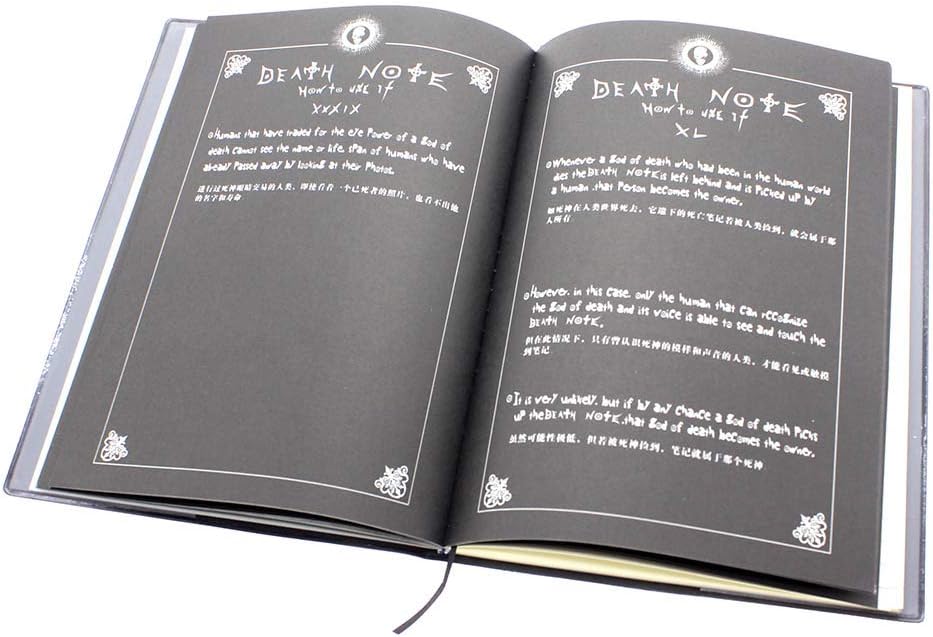 DEATH NOTE
How to use it
XXXIX
Humans that have traded for the eye Power of a god of
death cannot see the name or life. span of humans who have
already Passed away by looking at their Photos.
进行过死神眼睛交易的人类，即使看着一个已死者的照片，也看不出他
的名字和寿命
DEATH NOTE
How to use it
XL
Whenever a god of death who had been in the human world
dies the DEATH NOTE is left behind and is Picked up by
a human .that Person becomes the owner.
如死神在人类世界死去，它遗下的死亡笔记若被人类捡到，就会属于那
人所有
However. in this case. only the human that can rccognize
the god of death and its voice is able to see and touch the
DEATH NOTE.
但在此情况下，只有曾认识死神的模样和声音的人类，才能看见或触摸
到笔记
It is very unlikely. but if by any chance a god of death Picks
up the DEATH NOTE .that god of death becomes the owner.
虽然可能性极低，但若被死神捡到，笔记就属于那个死神